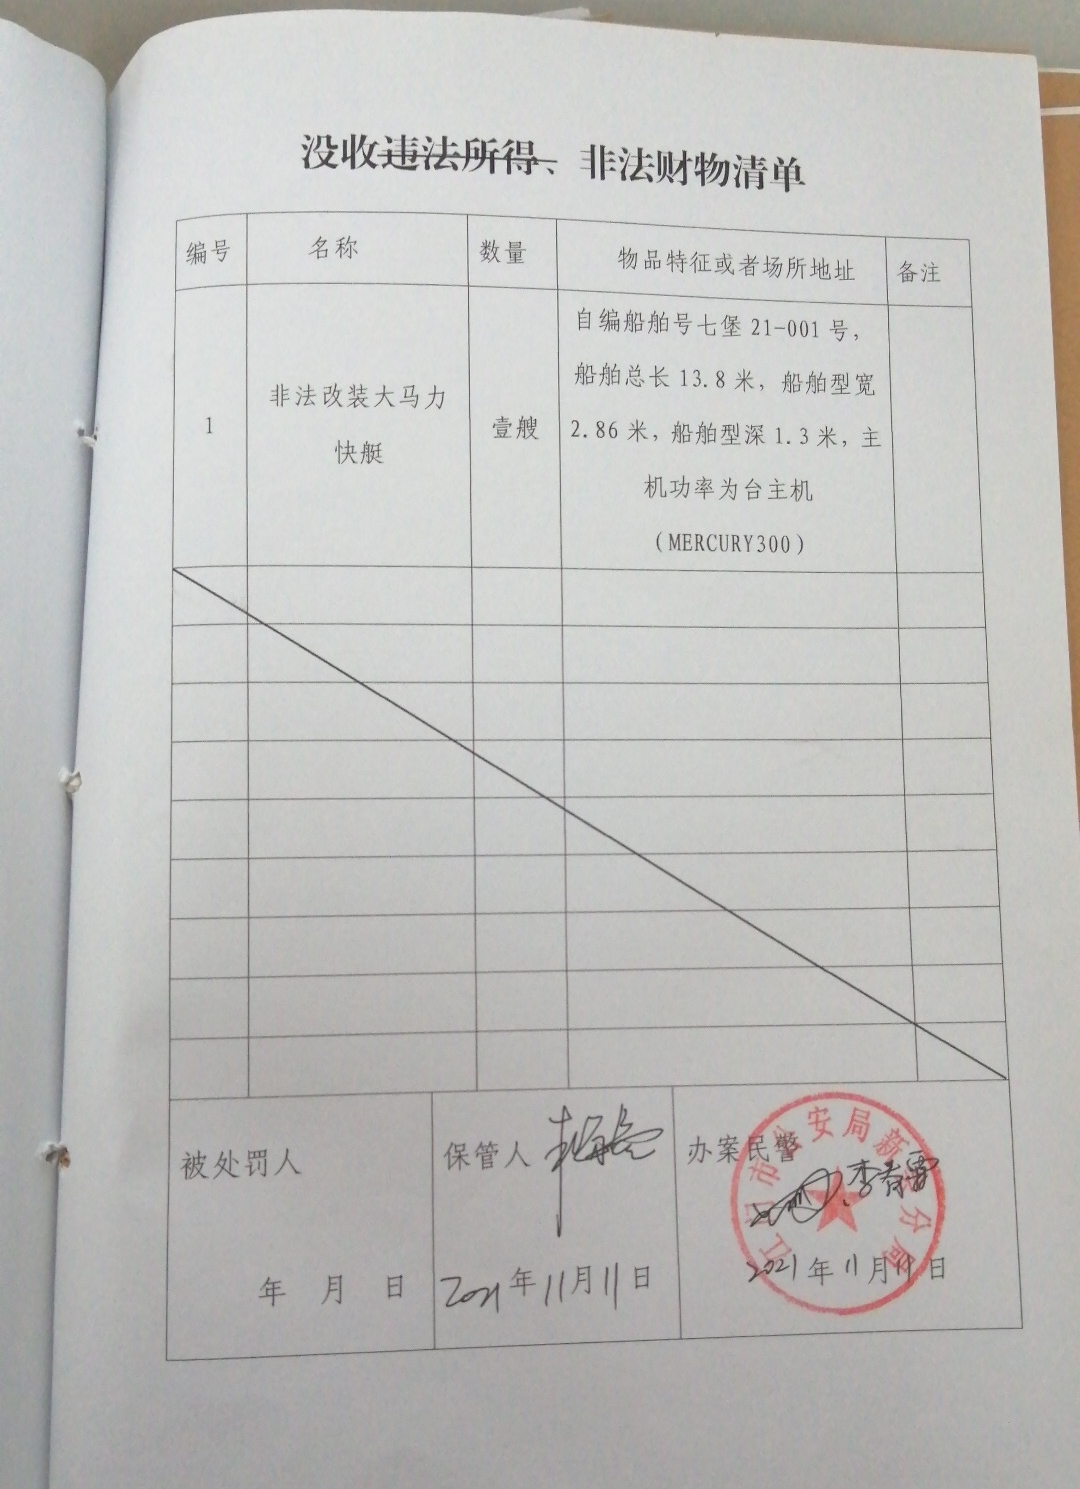 没收违法所得、非法财物清单
编号 名称 数量 物品特征或者场所地址 备注
1 非法改装大马力快艇 壹艘 自编船舶号七堡 21-001 号，
船舶总长 13.8 米，船舶型宽
2.86 米，船舶型深 1.3 米，主
机功率为台主机
（MERCURY300）
被处罚人
年 月 日
保管人
2021年11月11日
办案民警 李春雷
2021年11月11日
江门市公安局新会分局